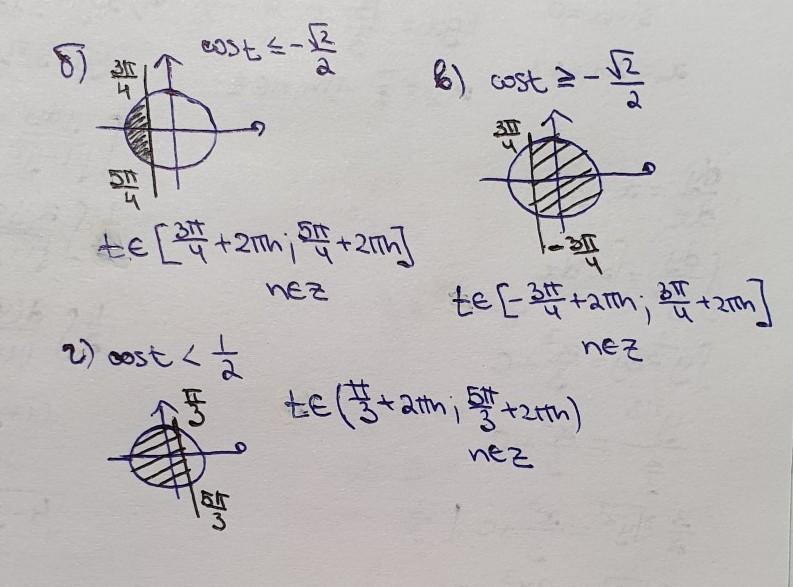 б) cost ≤ -√2/2
3π/4
5π/4
t∈[3π/4+2πn; 5π/4+2πn]
n∈z
в) cost ≥ -√2/2
3π/4
-3π/4
t∈[-3π/4+2πn; 3π/4+2πn]
n∈z
г) cost < 1/2
π/3
5π/3
t∈(π/3+2πn; 5π/3+2πn)
n∈z